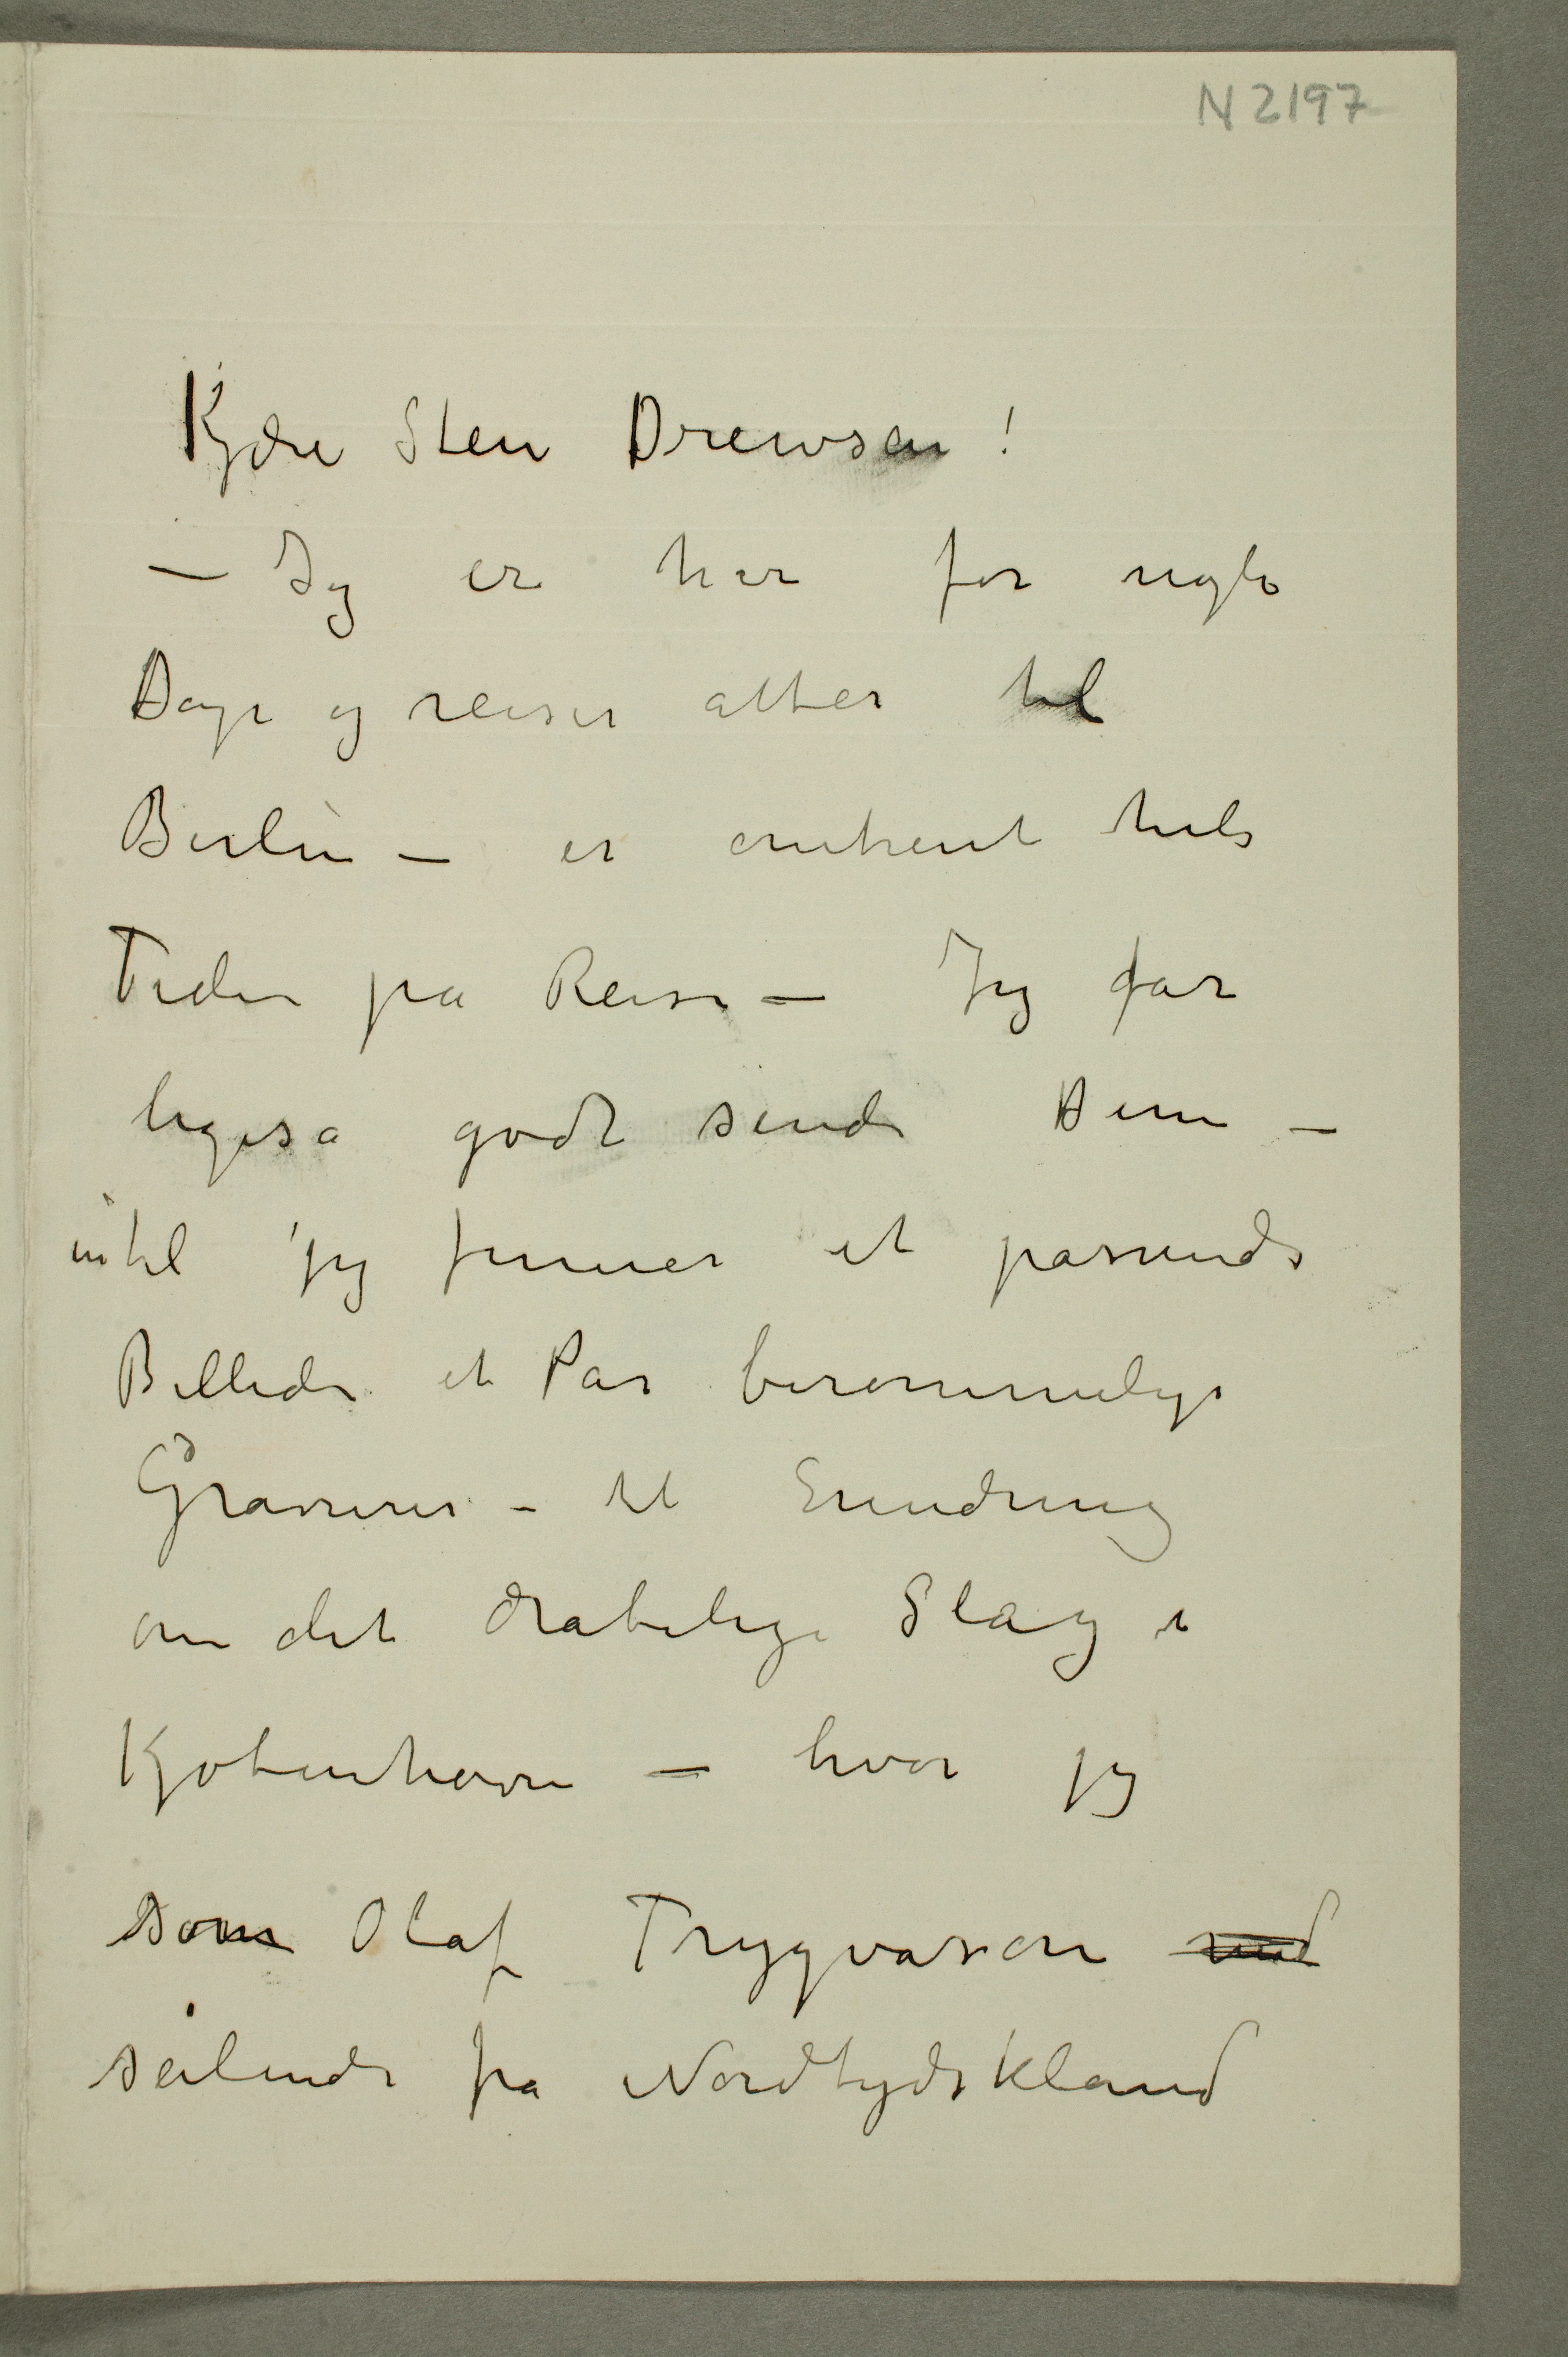 N 2197
Kjære Sten Drewsen!
— Jeg er her for nogle
Dage og reiser atter til
Berlin — er omtrent hele
Tiden på Reise — Jeg får
ligeså godt sende Dem —
intil jeg finner et passende
Billede et Par berømmelige
Graveurer – til Erindring
om det drabelige Slag i
Kjøbenhavn — hvor jeg
som Olaf Trygvason med
seilende fra Nordtydskland